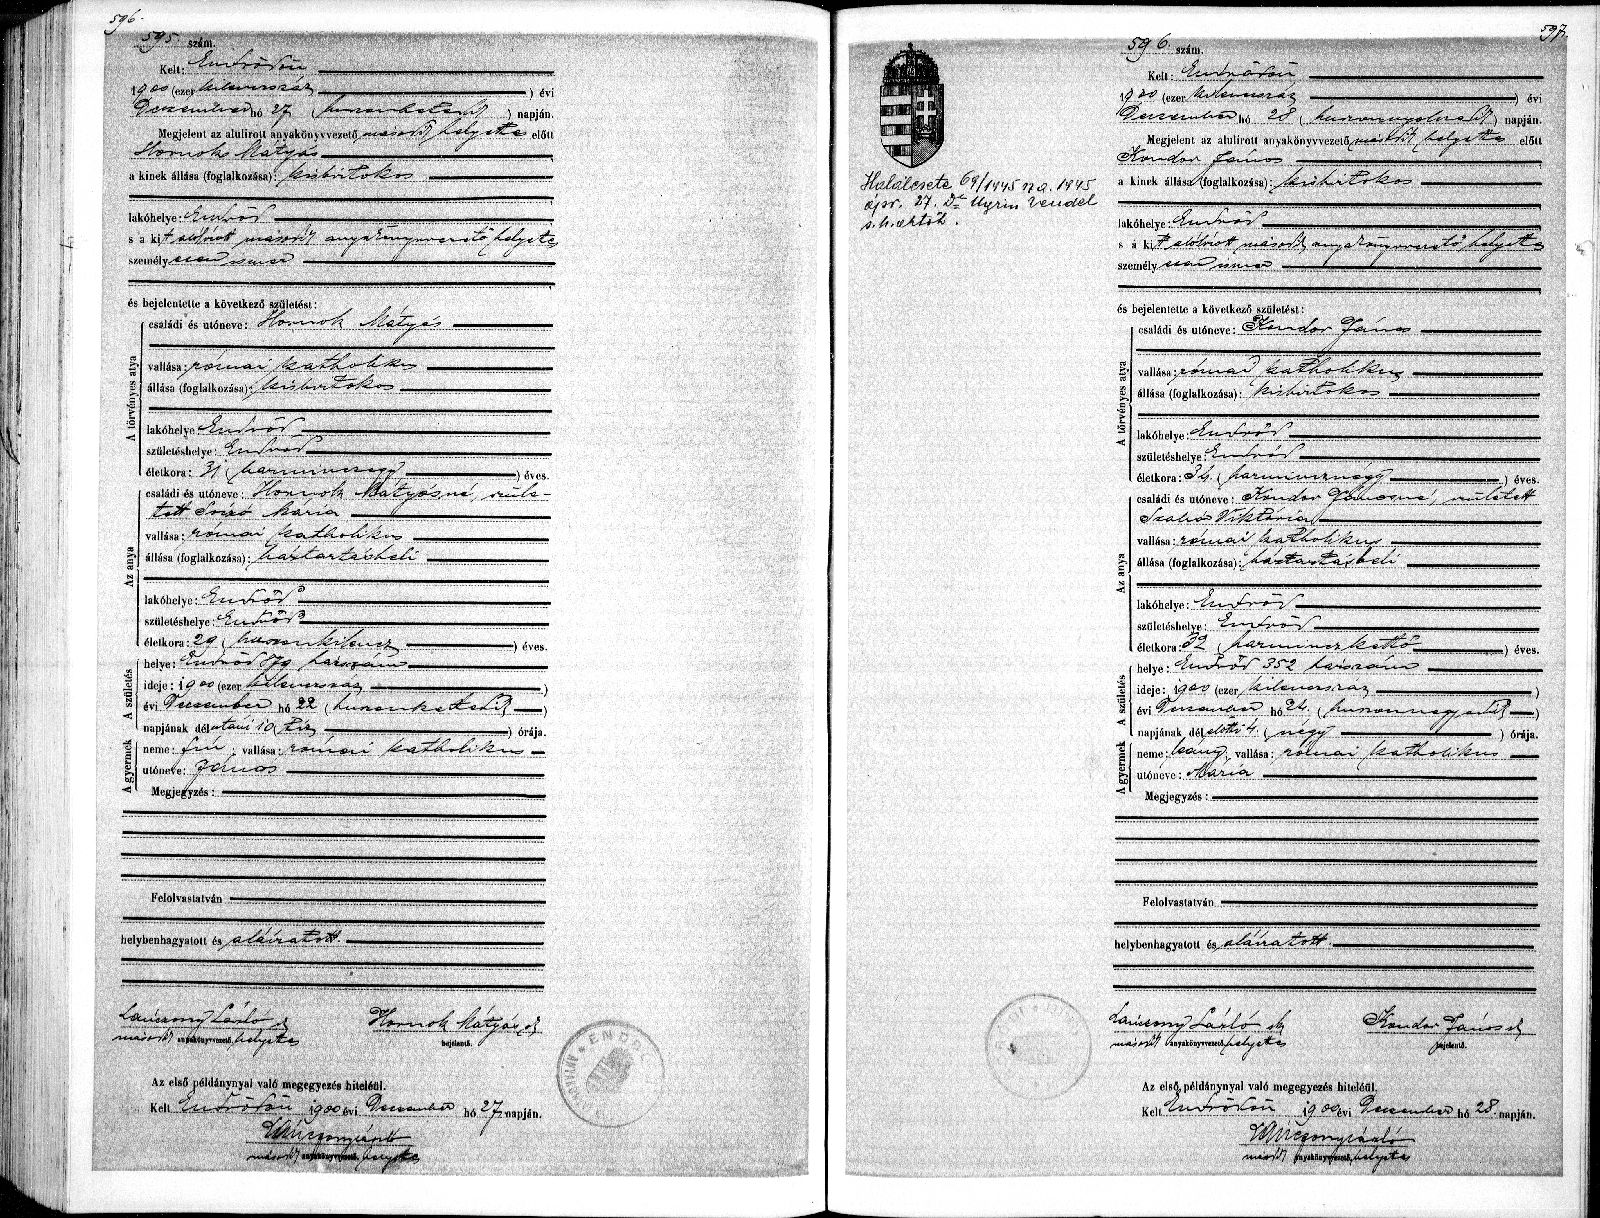 596.
595 szám.
Kelt: Endrődön
1900 (ezer kilenczszáz) évi
Deczember hó 27 (huszonhetedik) napján.
Megjelent az alulirott anyakönyvvezető másodh. helyettes előtt
Hornok Mátyás
a kinek állása (foglalkozása): kisbirtokos
lakóhelye: Endrőd
s a kit alólirott másodh. anyakönyvvezető helyettes
személyesen ismer
és bejelentette a következő születést:
A törvényes atya
családi és utóneve: Hornok Mátyás
vallása: római katholikus
állása (foglalkozása): kisbirtokos
lakóhelye: Endrőd
születéshelye: Endrőd
életkora: 31 (harminczegy) éves.
Az anya
családi és utóneve: Hornok Mátyásné, szüle-
tett Mária
vallása: római katholikus
állása (foglalkozása): háztartásbeli
lakóhelye: Endrőd
születéshelye: Endrőd
életkora: 29 (huszonkilencz) éves.
A születés
helye: Endrőd 879 házszám
ideje: 1900 (ezer kilenczszáz)
évi Deczember hó 22 (huszonkettedik)
napjának délutáni 10 (tiz) órája.
A gyermek
neme: fiú; vallása: római katholikus
utóneve: János
Megjegyzés:
Felolvastatván
helybenhagyatott és aláiratott.
László sk Hornok Mátyás sk
másodh. anyakönyvvezető helyettes bejelentő.
Az első példánynyal való megegyezés hiteléül.
Kelt Endrődön 1900 évi Deczember hó 27 napján.
László
másodh. anyakönyvvezető helyettes
597.
Halálesete 69/1945 na. 1945
ápr. 27. Dr Ugrin Vendel
s.h.aktók.
596 szám.
Kelt: Endrődön
1900 (ezer kilenczszáz) évi
Deczember hó 28 (huszonnyolczadik) napján.
Megjelent az alulirott anyakönyvvezető másodh. helyettes előtt
Kondor János
a kinek állása (foglalkozása): kisbirtokos
lakóhelye: Endrőd
s a kit alólirott másodh. anyakönyvvezető helyettes
személyesen ismer
és bejelentette a következő születést:
A törvényes atya
családi és utóneve: Kondor János
vallása: római katholikus
állása (foglalkozása): kisbirtokos
lakóhelye: Endrőd
születéshelye: Endrőd
életkora: 34 (harmincznégy) éves.
Az anya
családi és utóneve: Kondor Jánosné, született
Szabó Viktória
vallása: római katholikus
állása (foglalkozása): háztartásbeli
lakóhelye: Endrőd
születéshelye: Endrőd
életkora: 32 (harminczkettő) éves.
A születés
helye: Endrőd 352 házszám
ideje: 1900 (ezer kilenczszáz)
évi Deczember hó 24 (huszonnegyedik)
napjának délelőtti 4 (négy) órája.
A gyermek
neme: leány; vallása: római katholikus
utóneve: Mária
Megjegyzés:
Felolvastatván
helybenhagyatott és aláiratott.
László sk Kondor János sk
másodh. anyakönyvvezető helyettes bejelentő.
Az első példánynyal való megegyezés hiteléül.
Kelt Endrődön 1900 évi Deczember hó 28 napján.
László
másodh. anyakönyvvezető helyettes